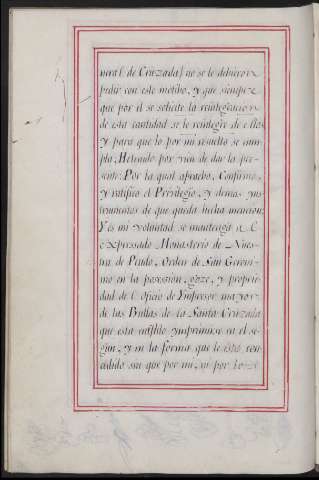 neral (de Cruzada) no se le debieron
pedir con este motibo, y que siempre
que por él se solicite la reintegracion
de esta cantidad se le reintegre de ellas
y para que lo por mi resuelto se cum-
pla, He tenido por vien de dar la pre-
sente: Por la qual apruebo, Confirmo,
y ratifico el Privilegio, y demas yns-
trumentos de que queda hecha mencion,
Y es mi voluntad se mantenga a el
expressado Monasterio de Nues-
tra de Prado, Orden de San Geroni-
mo en la possesion, goze, y proprie-
dad de el oficio de Ympresor mayor
de las Bullas de la Santa Cruzada
que esta en estilo ymprimirse en el se-
gun, y en la forma que le está con-
cedido sin que por mi, ni por los